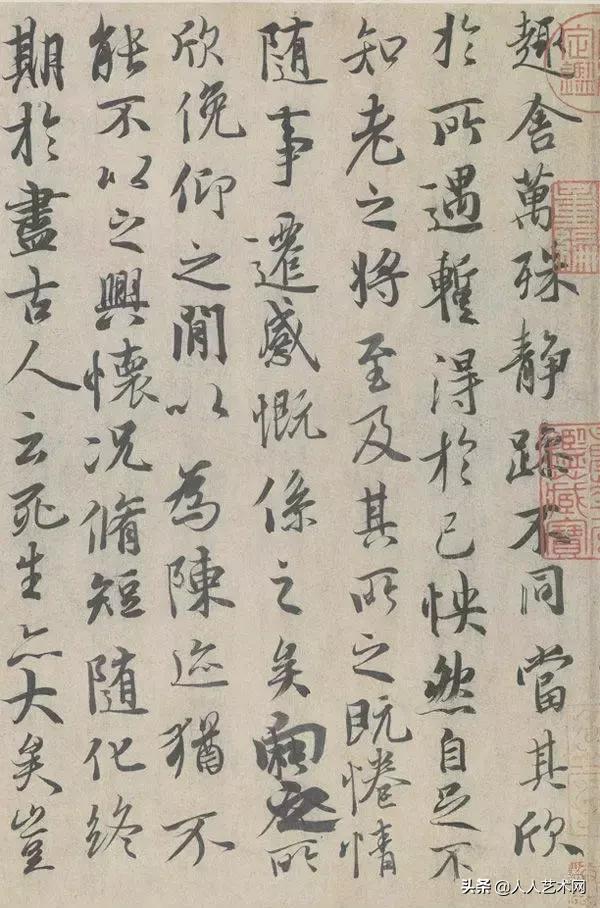 趣舍萬殊静躁不同當其欣
於所遇蹔得於己怏然自足不
知老之將至及其所之既惓情
隨事遷感慨係之矣向之所
欣俛仰之閒以為陳迹猶不
能不以之興懷況脩短隨化終
期於盡古人云死生亦大矣豈
头条 @人人艺术网